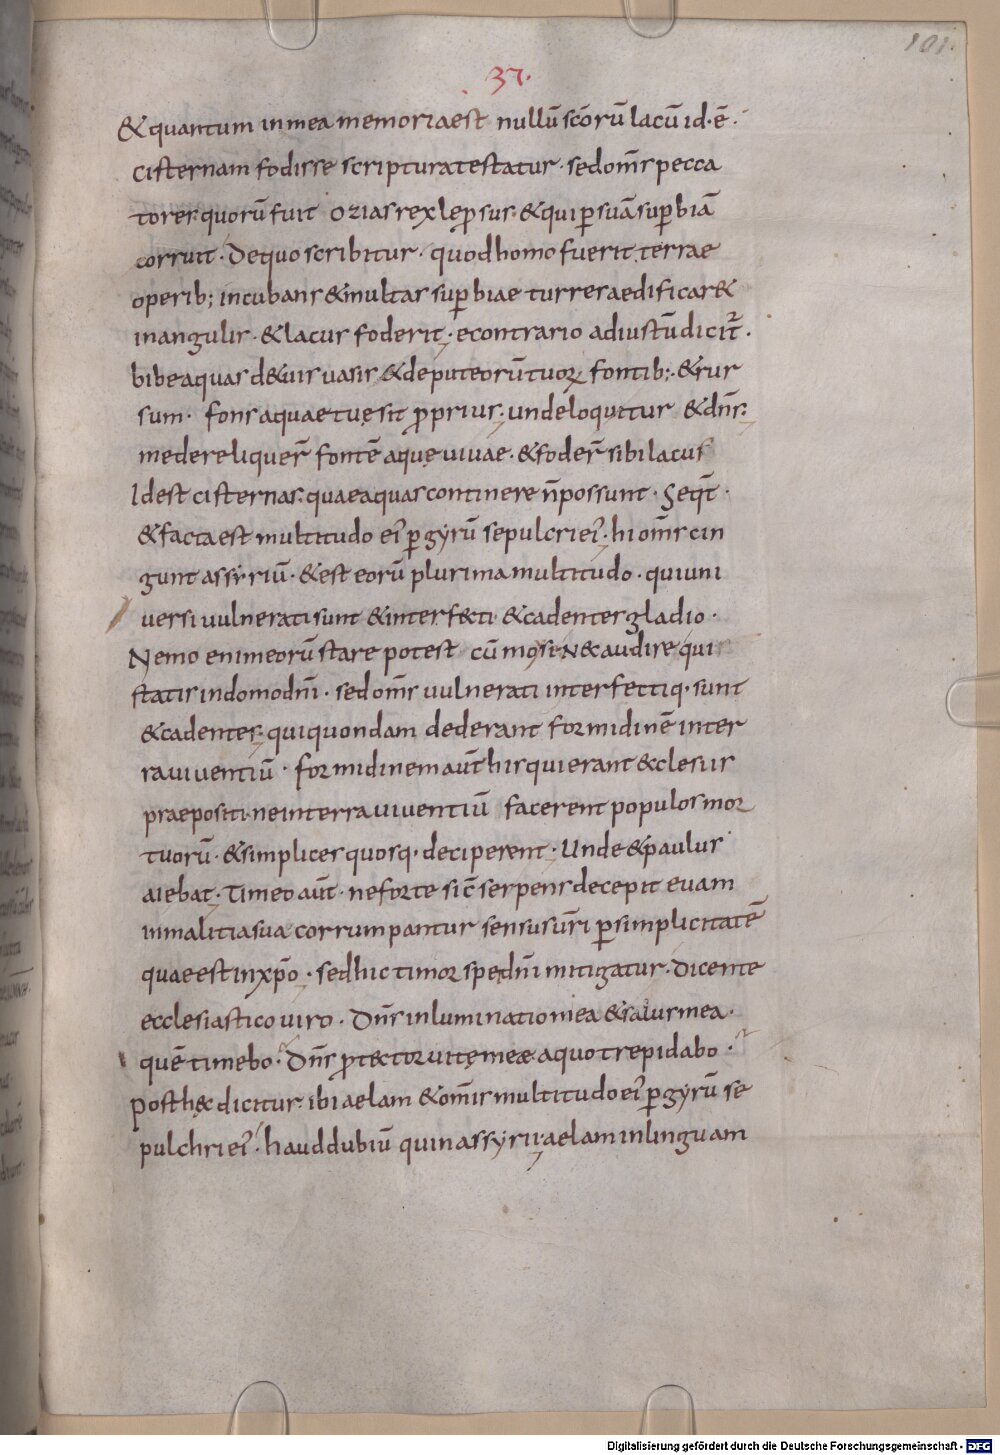 101.
37.
& quantum in mea memoria est nullū scōrū lacū id·ē·
cisternam fodisse scriptura testatur· sed om̄s pecca
tores quorū fuit ozias rex leprosus· & qui ꝑ suā suꝑbiā
corruit· De quo scribitur· quod homo fuerit terrae
operib; incubans & multas suꝑbiae turres aedificar&
in angulis· & lacus foderit· econtrario ad iustū dicit̄·
bibe aquas d&uis uasis & de puteorū tuoꝝ fontib;· & rur
sum· fons aquae tuę sit ꝓprius· unde loquitur & dn̄s·
me dereliquer̄ fontē aquę uiuae· & foder̄ sibi lacus
Id est cisternas· quae aquas continere n̄ possunt· Seqt̄·
& facta est multitudo ei' ꝑ gyrū sepulcri ei'· hi om̄s cin
gunt assyriū· & est eorū plurima multitudo· qui uni
uersi uulnerati sunt & interf&ti & cadentes gladio·
Nemo enim eorū stare potest cū moysi N & audire qui
statis in domo dn̄i· sed om̄s uulnerati interfectiq· sunt
& cadentes· qui quondam dederant formidinē in ter
ra uiuentiū· formidinem aūt his qui erant &clesiis
praepositi· ne in terra uiuentiū facerent populos mor
tuorū· & simplices quosq· deciperent· Unde & paulus
aiebat· Timeo aūt· ne forte sic̄ serpens decepit euam
in malitia sua corrumpantur sensus ur̄i ꝑ simplicitatē
quae est in xp̄o· sed hic timor spe dn̄i mitigatur· dicente
ecclesiastico uiro· Dn̄s inluminatio mea & salus mea·
quē timebo· Dn̄s ꝓt&tor uitę meæ a quo trepidabo·
Post hęc dicitur· ibi aelam & om̄is multitudo ei' ꝑ gyrū se
pulchri ei'· haud dubiū quin assyrii· aelam in linguam
Digitalisierung gefördert durch die Deutsche Forschungsgemeinschaft - DFG